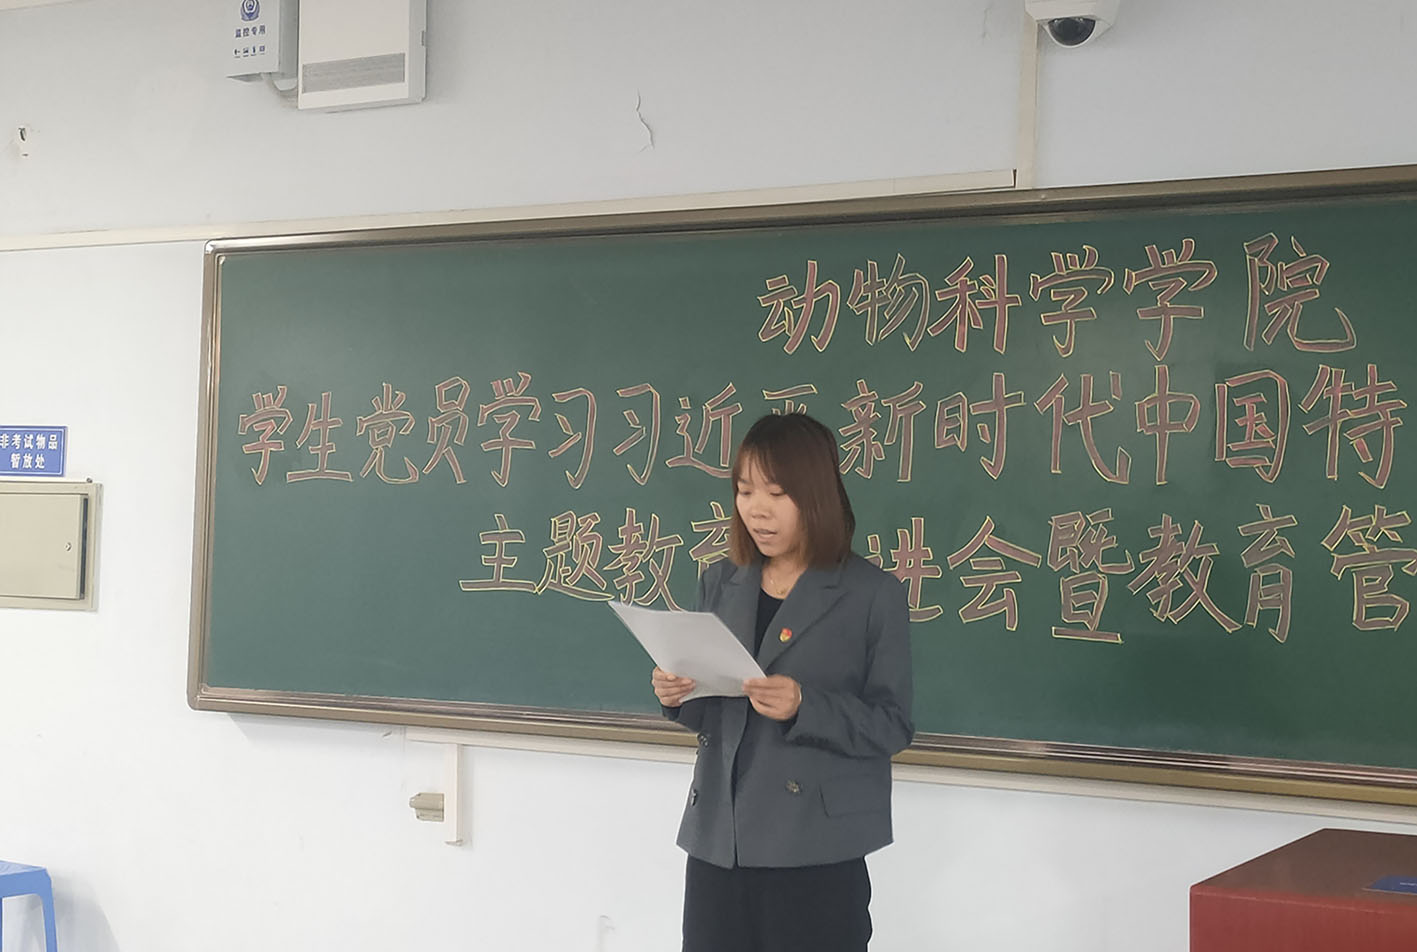 监控专用
动物科学学院
学生党员学习习近平新时代中国特
主题教育 进会暨教育管
非考试物品
暂放处